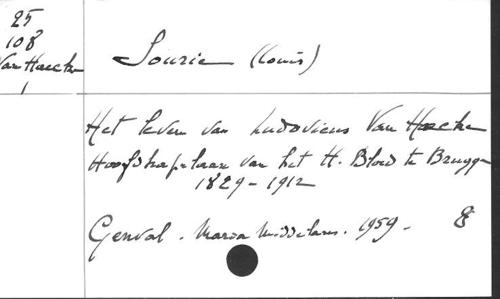 25
108
Van Haecke
1
Sourie (Louis)
Het leven van Ludovicus Van Haecke
Hoofdkapelaan van het H. Bloed te Brugge
1829-1912
Genval. Maria Middelares. 1959. 8